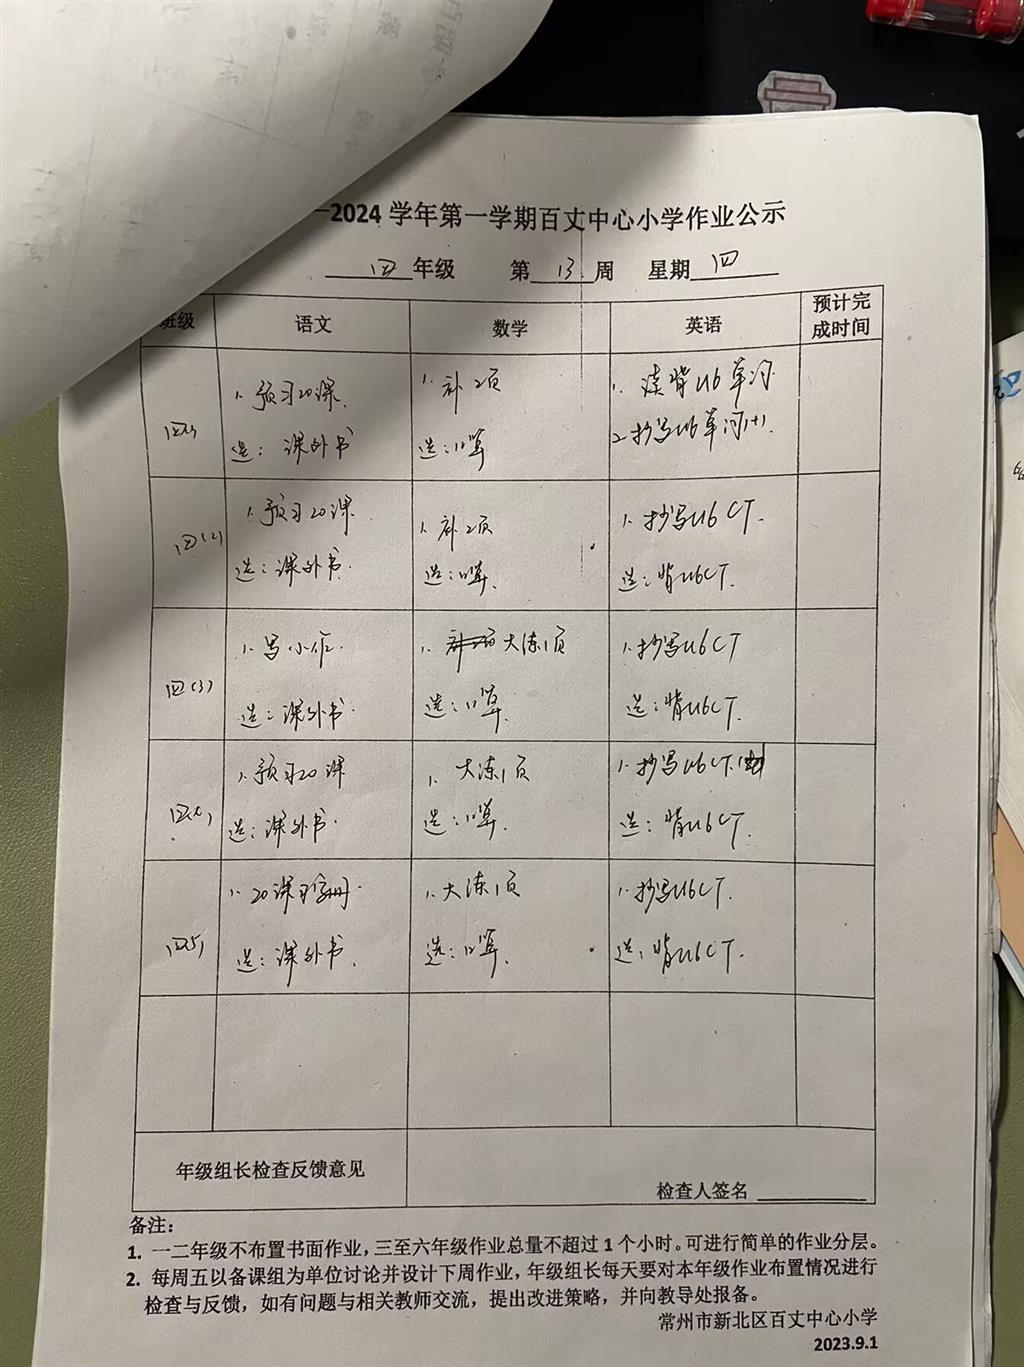 2024 学年第一学期百丈中心小学作业公示
四 年级 第 13 周 星期 四
班级 语文 数学 英语 预计完成时间
四(1) 1. 预习20课. 1. 补2页 1. 读背U6单词
选: 课外书 选:口算 2. 抄写U6单词1+1.
四(2) 1. 预习20课 1. 补2页 1. 抄写U6 CT.
选:课外书. 选:口算. 选:背U6CT.
四(3) 1. 写小作. 1. 大练1页 1. 抄写U6CT
选:课外书. 选:口算. 选:背U6CT.
四(4) 1. 预习20课 1. 大练1页 1. 抄写U6CT.
选:课外书. 选:口算. 选:背U6CT.
四(5) 1. 20课习字册. 1. 大练1页 1. 抄写U6CT.
选:课外书. 选:口算. 选:背U6CT.
年级组长检查反馈意见 检查人签名
备注:
1. 一二年级不布置书面作业，三至六年级作业总量不超过 1 个小时。可进行简单的作业分层。
2. 每周五以备课组为单位讨论并设计下周作业，年级组长每天要对本年级作业布置情况进行
检查与反馈，如有问题与相关教师交流，提出改进策略，并向教导处报备。
常州市新北区百丈中心小学
2023.9.1